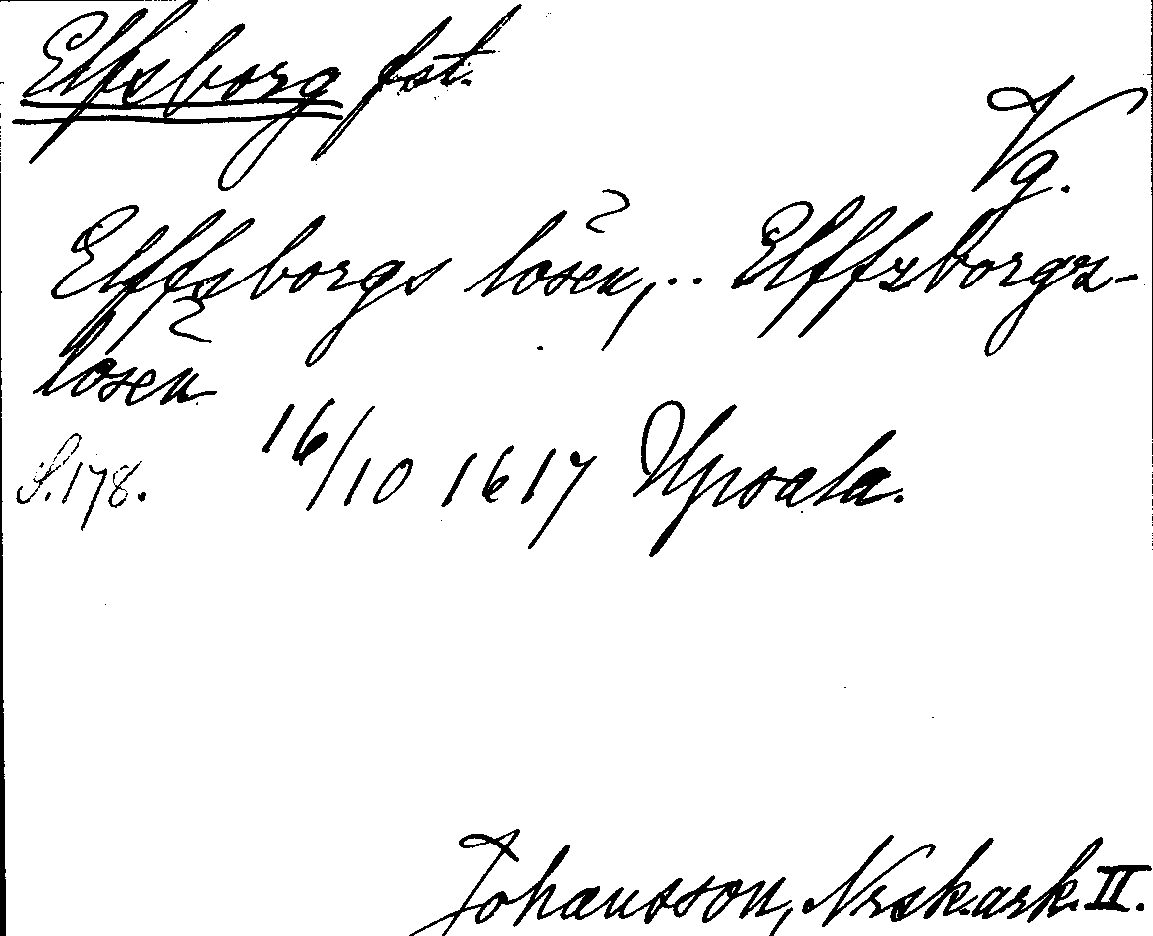 Elfsborg fst.
Vg.
Elffsborgs lösen, .. Elffzborgz-
lösen
S. 178. 16/10 1617 Upsala.
Johansson, Nrsk.ark. II.